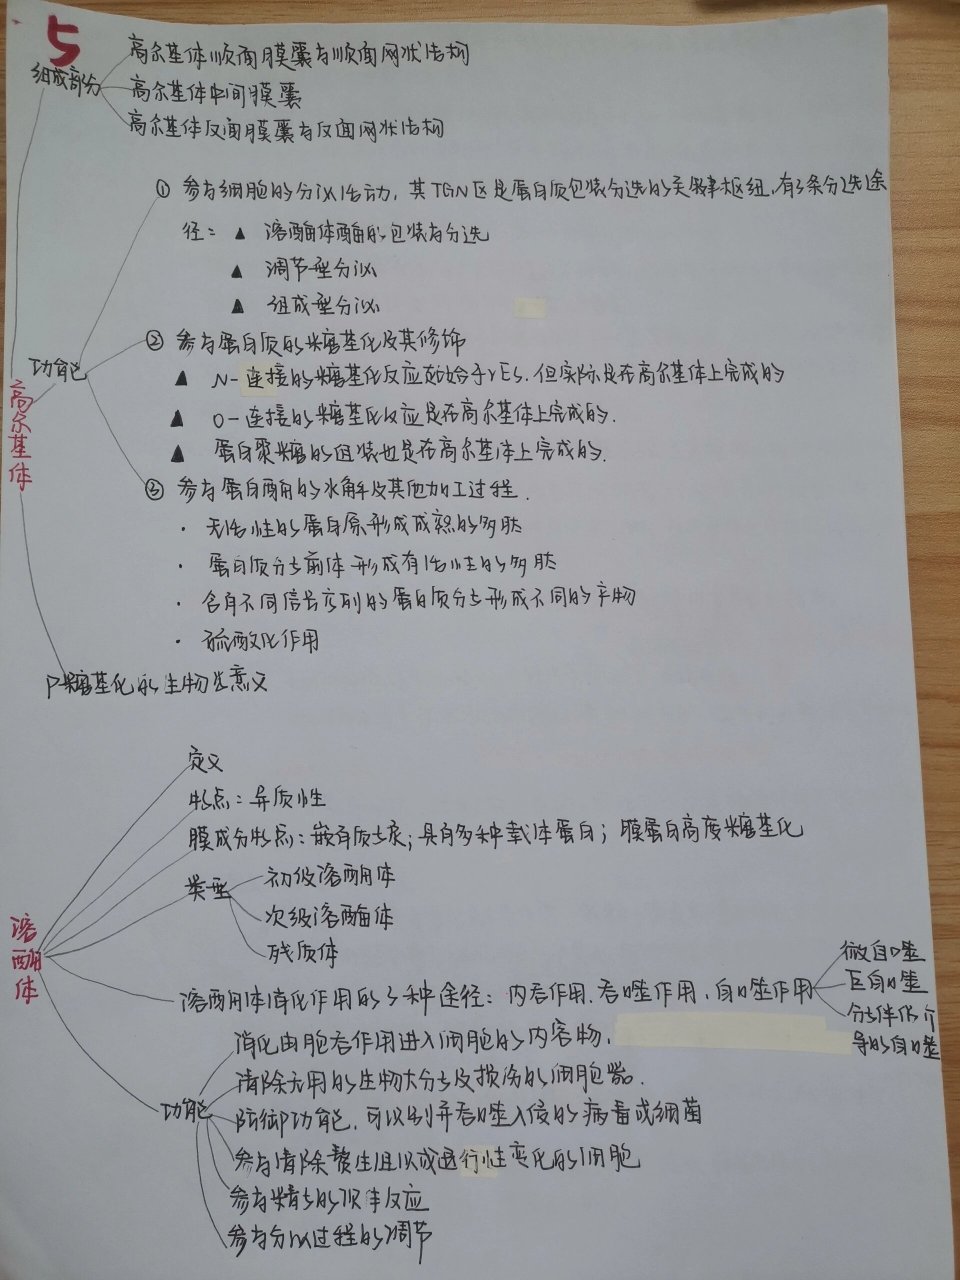 5
组成部分
高尔基体顺面膜囊与顺面网状结构
高尔基体中间膜囊
高尔基体反面膜囊与反面网状结构
高尔基体
功能
① 参与细胞的分泌活动，其TGN区是蛋白质包装分选的关键枢纽，有3条分选途
径：▲ 溶酶体酶的包装与分选
▲ 调节型分泌
▲ 组成型分泌
② 参与蛋白质的糖基化及其修饰
▲ N-连接的糖基化反应起始于rES，但实际是在高尔基体上完成的
▲ O-连接的糖基化反应是在高尔基体上完成的.
▲ 蛋白聚糖的组装也是在高尔基体上完成的.
③ 参与蛋白酶的水解及其他加工过程.
· 无活性的蛋白原形成成熟的多肽
· 蛋白质分子前体形成有活性的多肽
· 含有不同信号序列的蛋白质分子形成不同的产物
· 硫酸化作用
P糖基化的生物学意义
溶酶体
定义
特点：异质性
膜成分特点：嵌有质子泵；具有多种载体蛋白；膜蛋白高度糖基化
类型
初级溶酶体
次级溶酶体
残质体
溶酶体消化作用的3种途径：内吞作用、吞噬作用、自噬作用
微自噬
巨自噬
分子伴侣介
导的自噬
功能
消化由胞吞作用进入细胞的内容物，
清除无用的生物大分子及损伤的细胞器.
防御功能，可识别并吞噬入侵的病毒或细菌
参与清除赘生组织或退行性变化的细胞
参与精子的顶体反应
参与分泌过程的调节